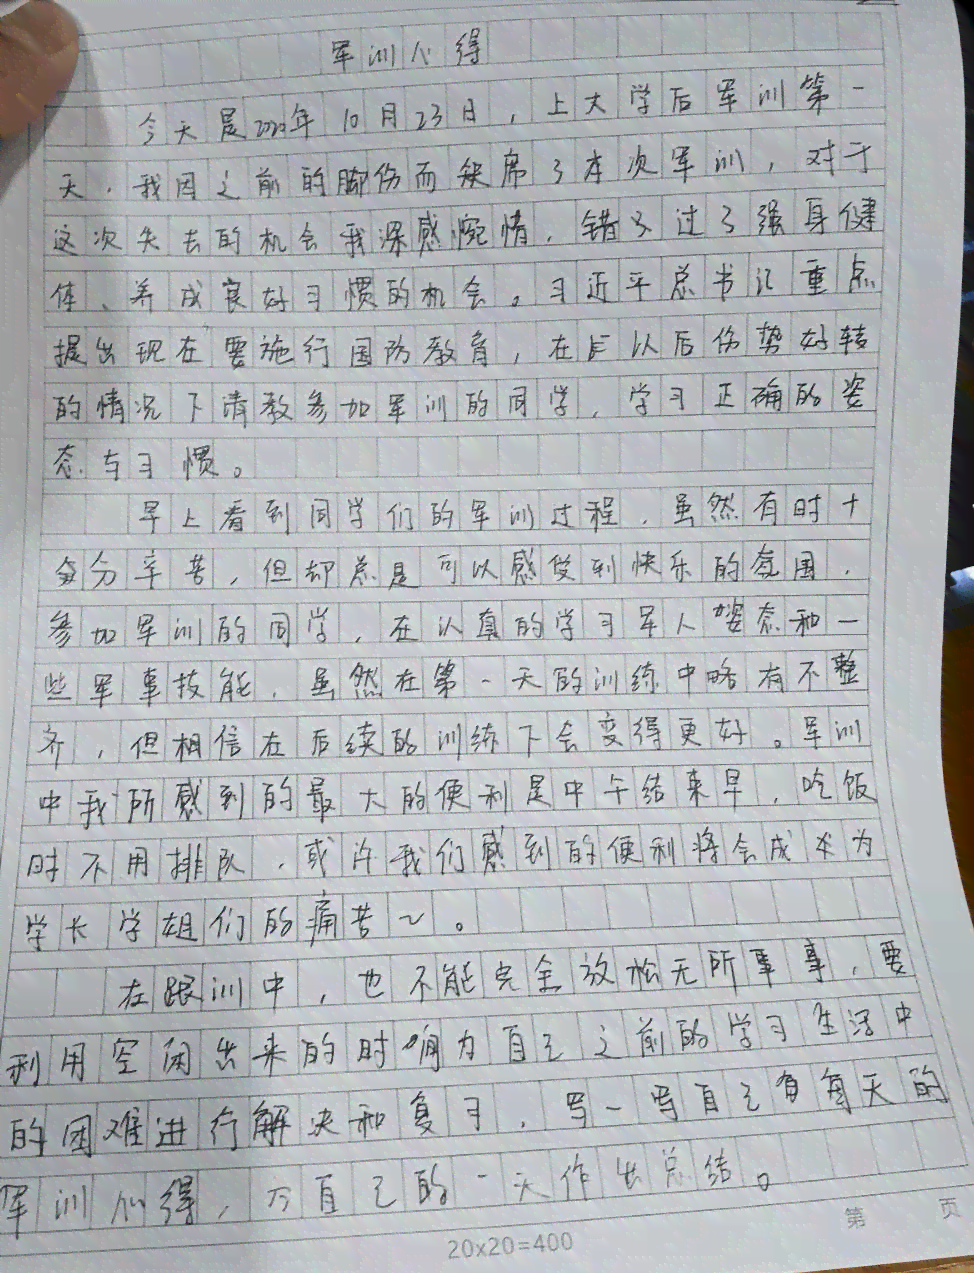 军训心得
今天是2022年10月23日，上大学后军训第一
天，我因之前的脚伤而缺席了本次军训，对于
这次失去的机会我深感惋惜，错过了强身健
体、养成良好习惯的机会。习近平总书记重点
提出现在要施行国防教育，在以后伤势好转
的情况下请教参加军训的同学，学习正确的姿
态与习惯。
早上看到同学们的军训过程，虽然有时十
分辛苦，但却总是可以感受到快乐的氛围，
参加军训的同学，在认真的学习军人姿态和一
些军事技能，虽然在第一天的训练中略有不整
齐，但相信在后续的训练下会变得更好。军训
中我所感到的最大的便利是中午结束早，吃饭
时不用排队，或许我们感到的便利将会成为
学长学姐们的痛苦~。
在跟训中，也不能完全放松无所事事，要
利用空闲出来的时间为自己之前的学习生活中
的困难进行解决和复习，写一写自己每天的
军训心得，为自己的一天作出总结。
20x20=400
第 页